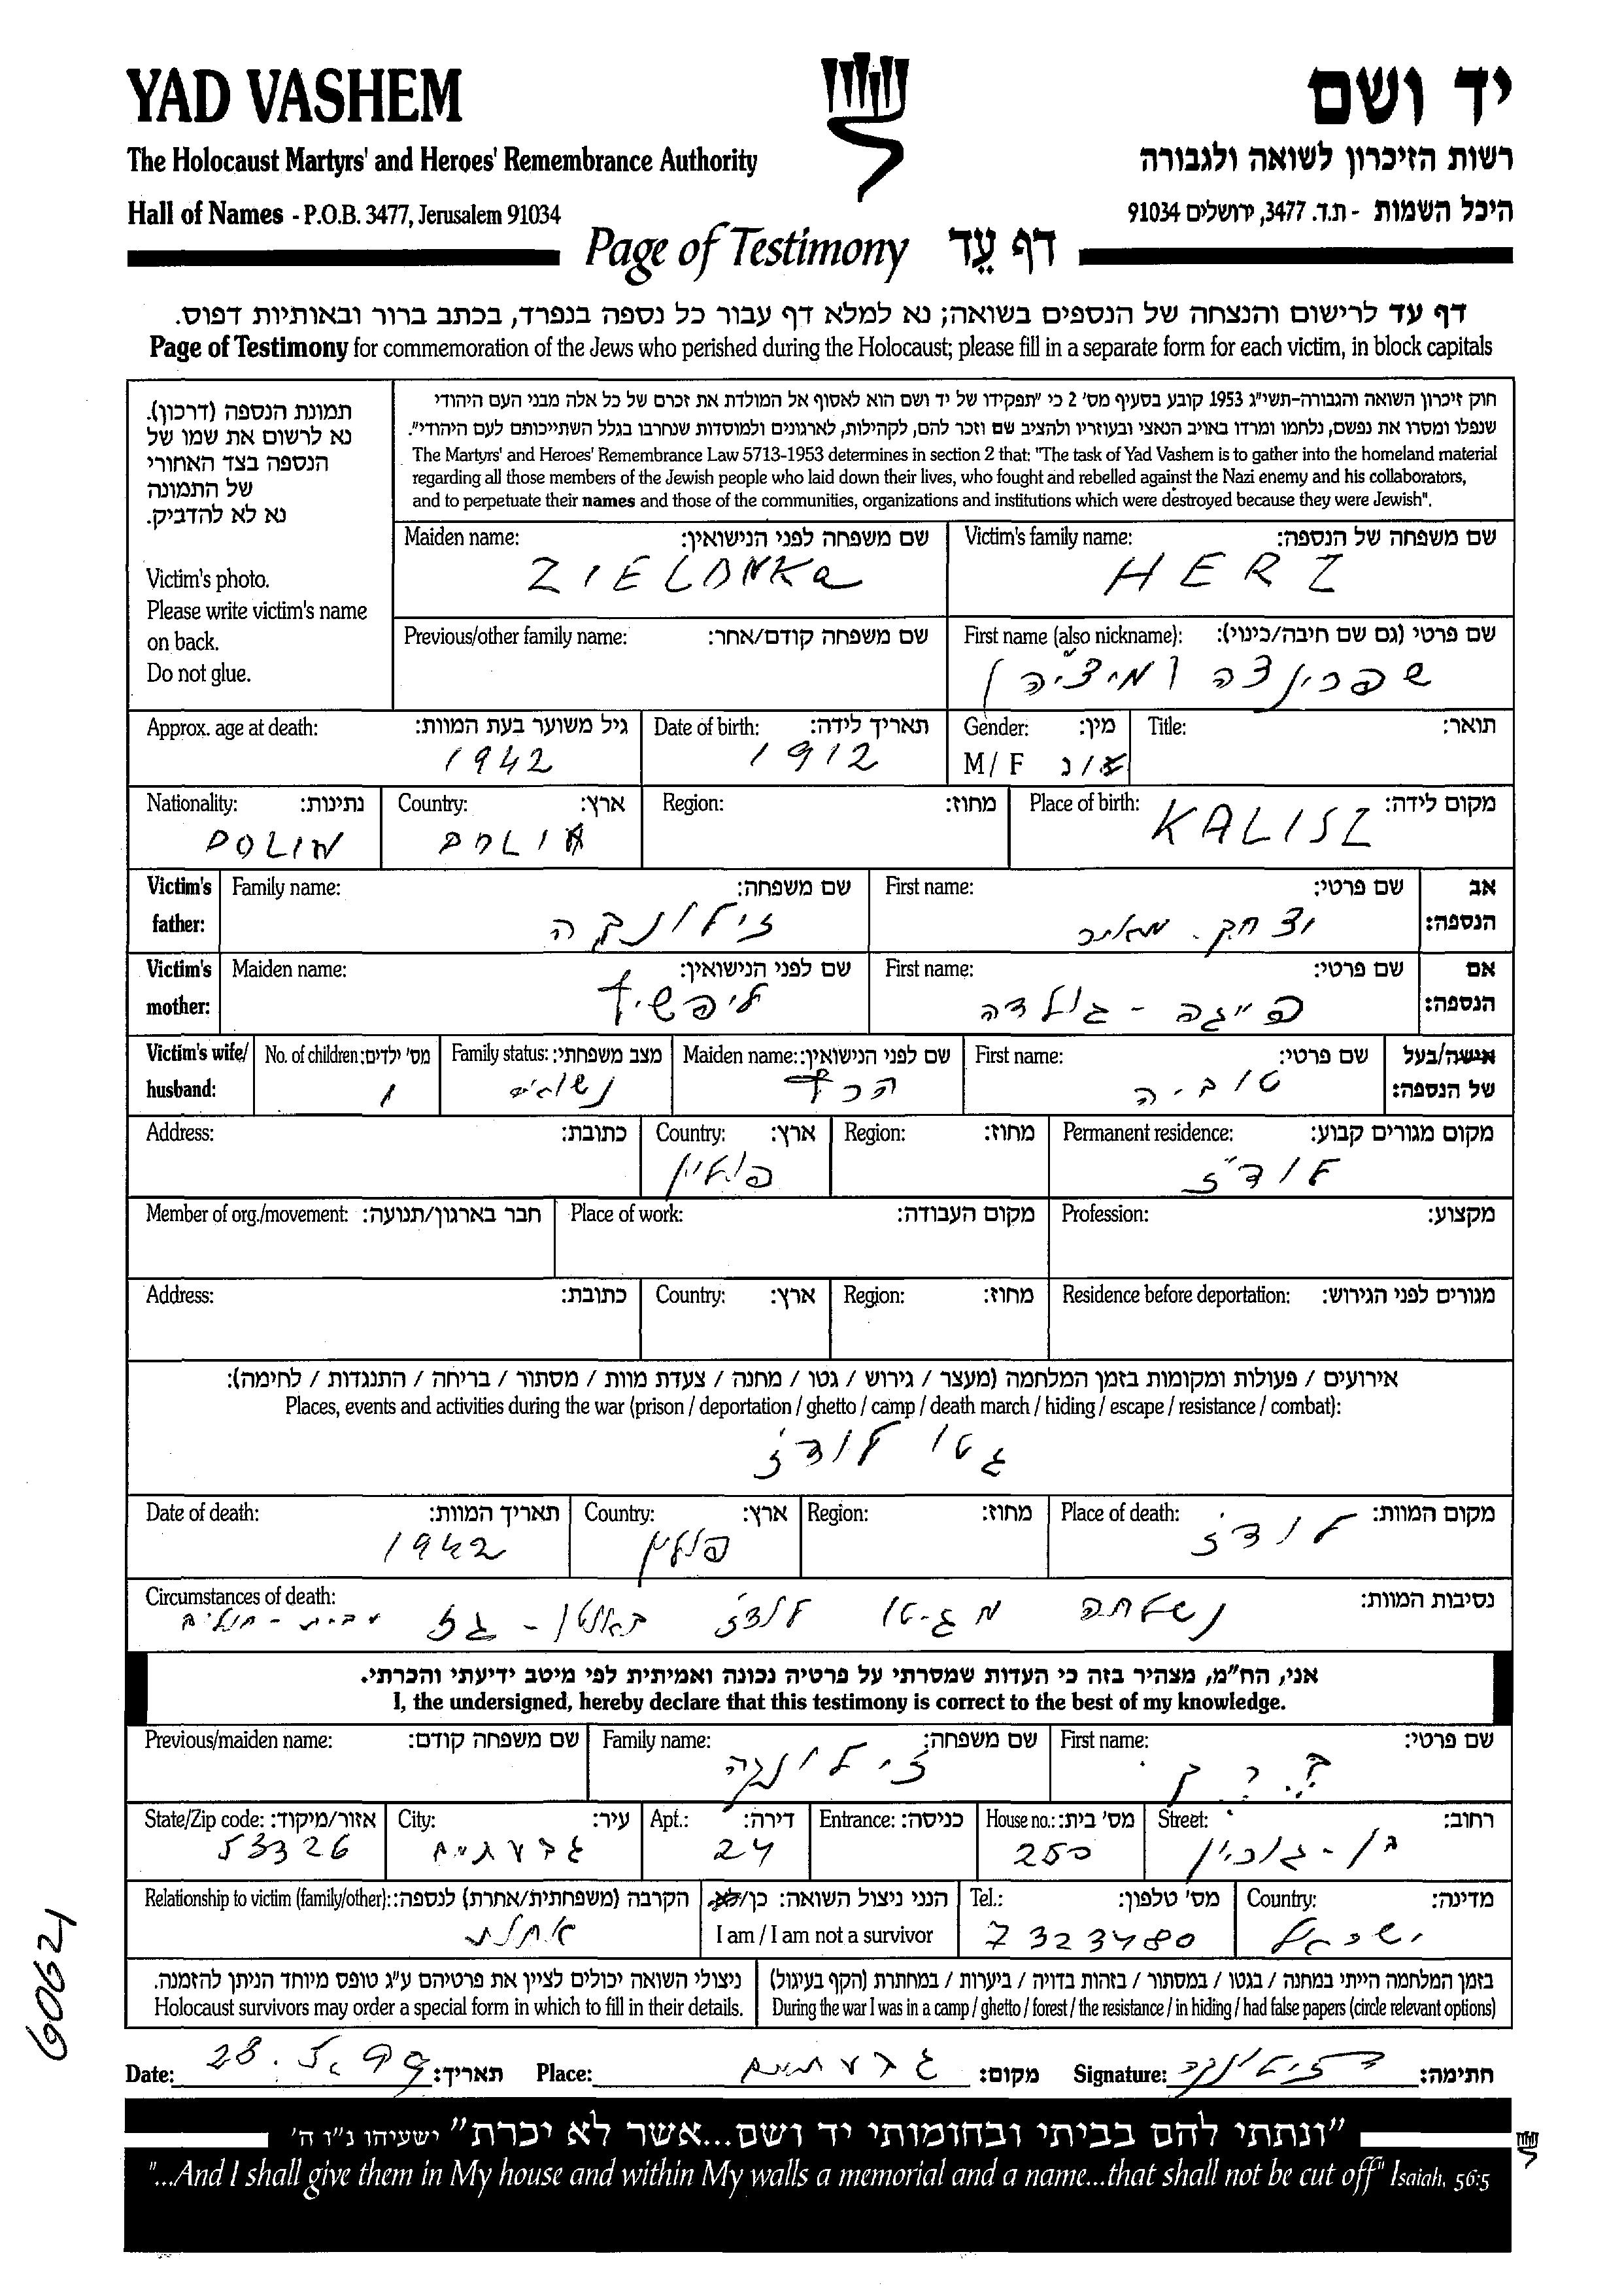 YAD VASHEM
יד ושם
The Holocaust Martyrs' and Heroes' Remembrance Authority
רשות הזיכרון לשואה ולגבורה
Hall of Names - P.O.B. 3477, Jerusalem 91034
היכל השמות - ת.ד. 3477, ירושלים 91034
Page of Testimony דף עֵד
דף עד לרישום והנצחה של הנספים בשואה; נא למלא דף עבור כל נספה בנפרד, בכתב ברור ובאותיות דפוס.
Page of Testimony for commemoration of the Jews who perished during the Holocaust; please fill in a separate form for each victim, in block capitals
תמונת הנספה (דרכון).
נא לרשום את שמו של
הנספה בצד האחורי
של התמונה
נא לא להדביק.
Victim's photo.
Please write victim's name
on back.
Do not glue.
חוק זיכרון השואה והגבורה-תשי"ג 1953 קובע בסעיף מס' 2 כי "תפקידו של יד ושם הוא לאסוף אל המולדת את זכרם של כל אלה מבני העם היהודי
שנפלו ומסרו את נפשם, נלחמו ומרדו באויב הנאצי ובעוזריו ולהציב שם וזכר להם, לקהילות, לארגונים ולמוסדות שנחרבו בגלל השתייכותם לעם היהודי".
The Martyrs' and Heroes' Remembrance Law 5713-1953 determines in section 2 that: "The task of Yad Vashem is to gather into the homeland material
regarding all those members of the Jewish people who laid down their lives, who fought and rebelled against the Nazi enemy and his collaborators,
and to perpetuate their names and those of the communities, organizations and institutions which were destroyed because they were Jewish".
Victim's family name: שם משפחה של הנספה:
HERZ
Maiden name: שם משפחה לפני הנישואין:
ZIELONKa
First name (also nickname): שם פרטי (גם שם חיבה/כינוי):
שפרינצה (מיציה)
Previous/other family name: שם משפחה קודם/אחר:
Title: תואר:
Gender: מין:
M/ F ז/נ
Date of birth: תאריך לידה:
1912
Approx. age at death: גיל משוער בעת המוות:
1942
Place of birth: מקום לידה:
KALISZ
Region: מחוז:
Country: ארץ:
POLIN
Nationality: נתינות:
POLIN
Victim's father: אב הנספה:
First name: שם פרטי:
יצחק. מאיר
Family name: שם משפחה:
זילונקה
Victim's mother: אם הנספה:
First name: שם פרטי:
פייגה - גולדה
Maiden name: שם לפני הנישואין:
ליפשיץ
Victim's wife/ husband: אישה/בעל של הנספה:
First name: שם פרטי:
טוביה
Maiden name: שם לפני הנישואין:
הרץ
Family status: מצב משפחתי:
נשואים
No. of children: מס' ילדים:
1
Permanent residence: מקום מגורים קבוע:
לודז'
Region: מחוז:
Country: ארץ:
פולין
Address: כתובת:
Profession: מקצוע:
Place of work: מקום העבודה:
Member of org./movement: חבר בארגון/תנועה:
Residence before deportation: מגורים לפני הגירוש:
Region: מחוז:
Country: ארץ:
Address: כתובת:
אירועים / פעולות ומקומות בזמן המלחמה (מעצר / גירוש / גטו / מחנה / צעדת מוות / מסתור / בריחה / התנגדות / לחימה):
Places, events and activities during the war (prison / deportation / ghetto / camp / death march / hiding / escape / resistance / combat):
גטו לודז'
Place of death: מקום המוות:
לודז'
Region: מחוז:
Country: ארץ:
פולין
Date of death: תאריך המוות:
1942
Circumstances of death: נסיבות המוות:
נשלחה מגיטו לודז' באוטו - גז מבית - חולים
אני, הח"מ, מצהיר בזה כי העדות שמסרתי על פרטיה נכונה ואמיתית לפי מיטב ידיעתי והכרתי.
I, the undersigned, hereby declare that this testimony is correct to the best of my knowledge.
First name: שם פרטי:
Family name: שם משפחה:
זילונקה
Previous/maiden name: שם משפחה קודם:
Street: רחוב:
בן - גוריון
House no.: מס' בית:
250
Entrance: כניסה:
Apt.: דירה:
24
City: עיר:
גבעתיים
State/Zip code: אזור/מיקוד:
53326
Country: מדינה:
ישראל
Tel.: מס' טלפון:
7323480
הנני ניצול השואה: כן/לא
I am / I am not a survivor
Relationship to victim (family/other): הקרבה (משפחתית/אחרת) לנספה:
אחות
בזמן המלחמה הייתי במחנה / בגטו / במסתור / בזהות בדויה / ביערות / במחתרת (הקף בעיגול)
During the war I was in a camp / ghetto / forest / the resistance / in hiding / had false papers (circle relevant options)
ניצולי השואה יכולים לציין את פרטיהם ע"ג טופס מיוחד הניתן להזמנה.
Holocaust survivors may order a special form in which to fill in their details.
60621
Date: 28.5.99 תאריך: Place: גבעתיים מקום: Signature: חתימה:
"ונתתי להם בביתי ובחומותי יד ושם...אשר לא יכרת" ישעיהו נ"ו ה'
"...And I shall give them in My house and within My walls a memorial and a name...that shall not be cut off" Isaiah, 56:5